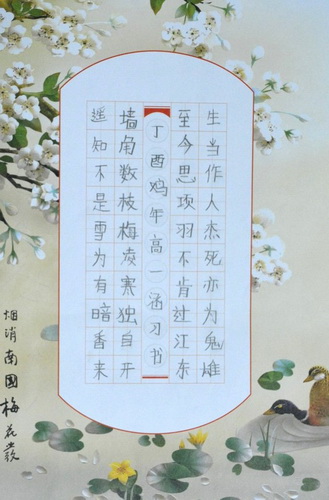 生当作人杰死亦为鬼雄
至今思项羽不肯过江东
丁酉鸡年高一涵习书
墙角数枝梅凌寒独自开
遥知不是雪为有暗香来
烟消南国梅花